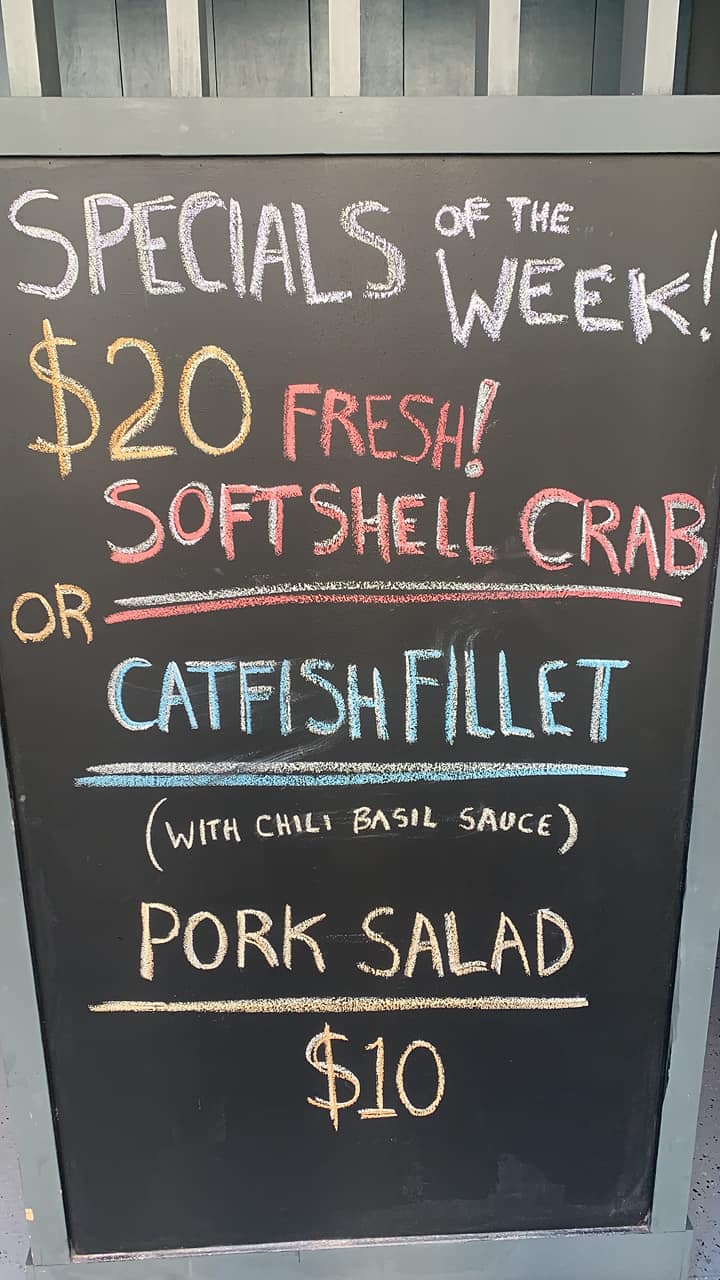 SPECIALS OF THE WEEK!
$20 FRESH!
SOFT SHELL CRAB
OR
CATFISH FILLET
(WITH CHILI BASIL SAUCE)
PORK SALAD
$10